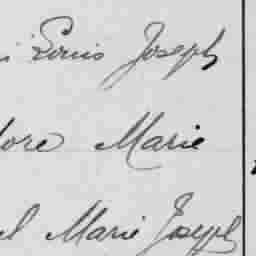 Louis Joseph
ore Marie
el Marie Joseph